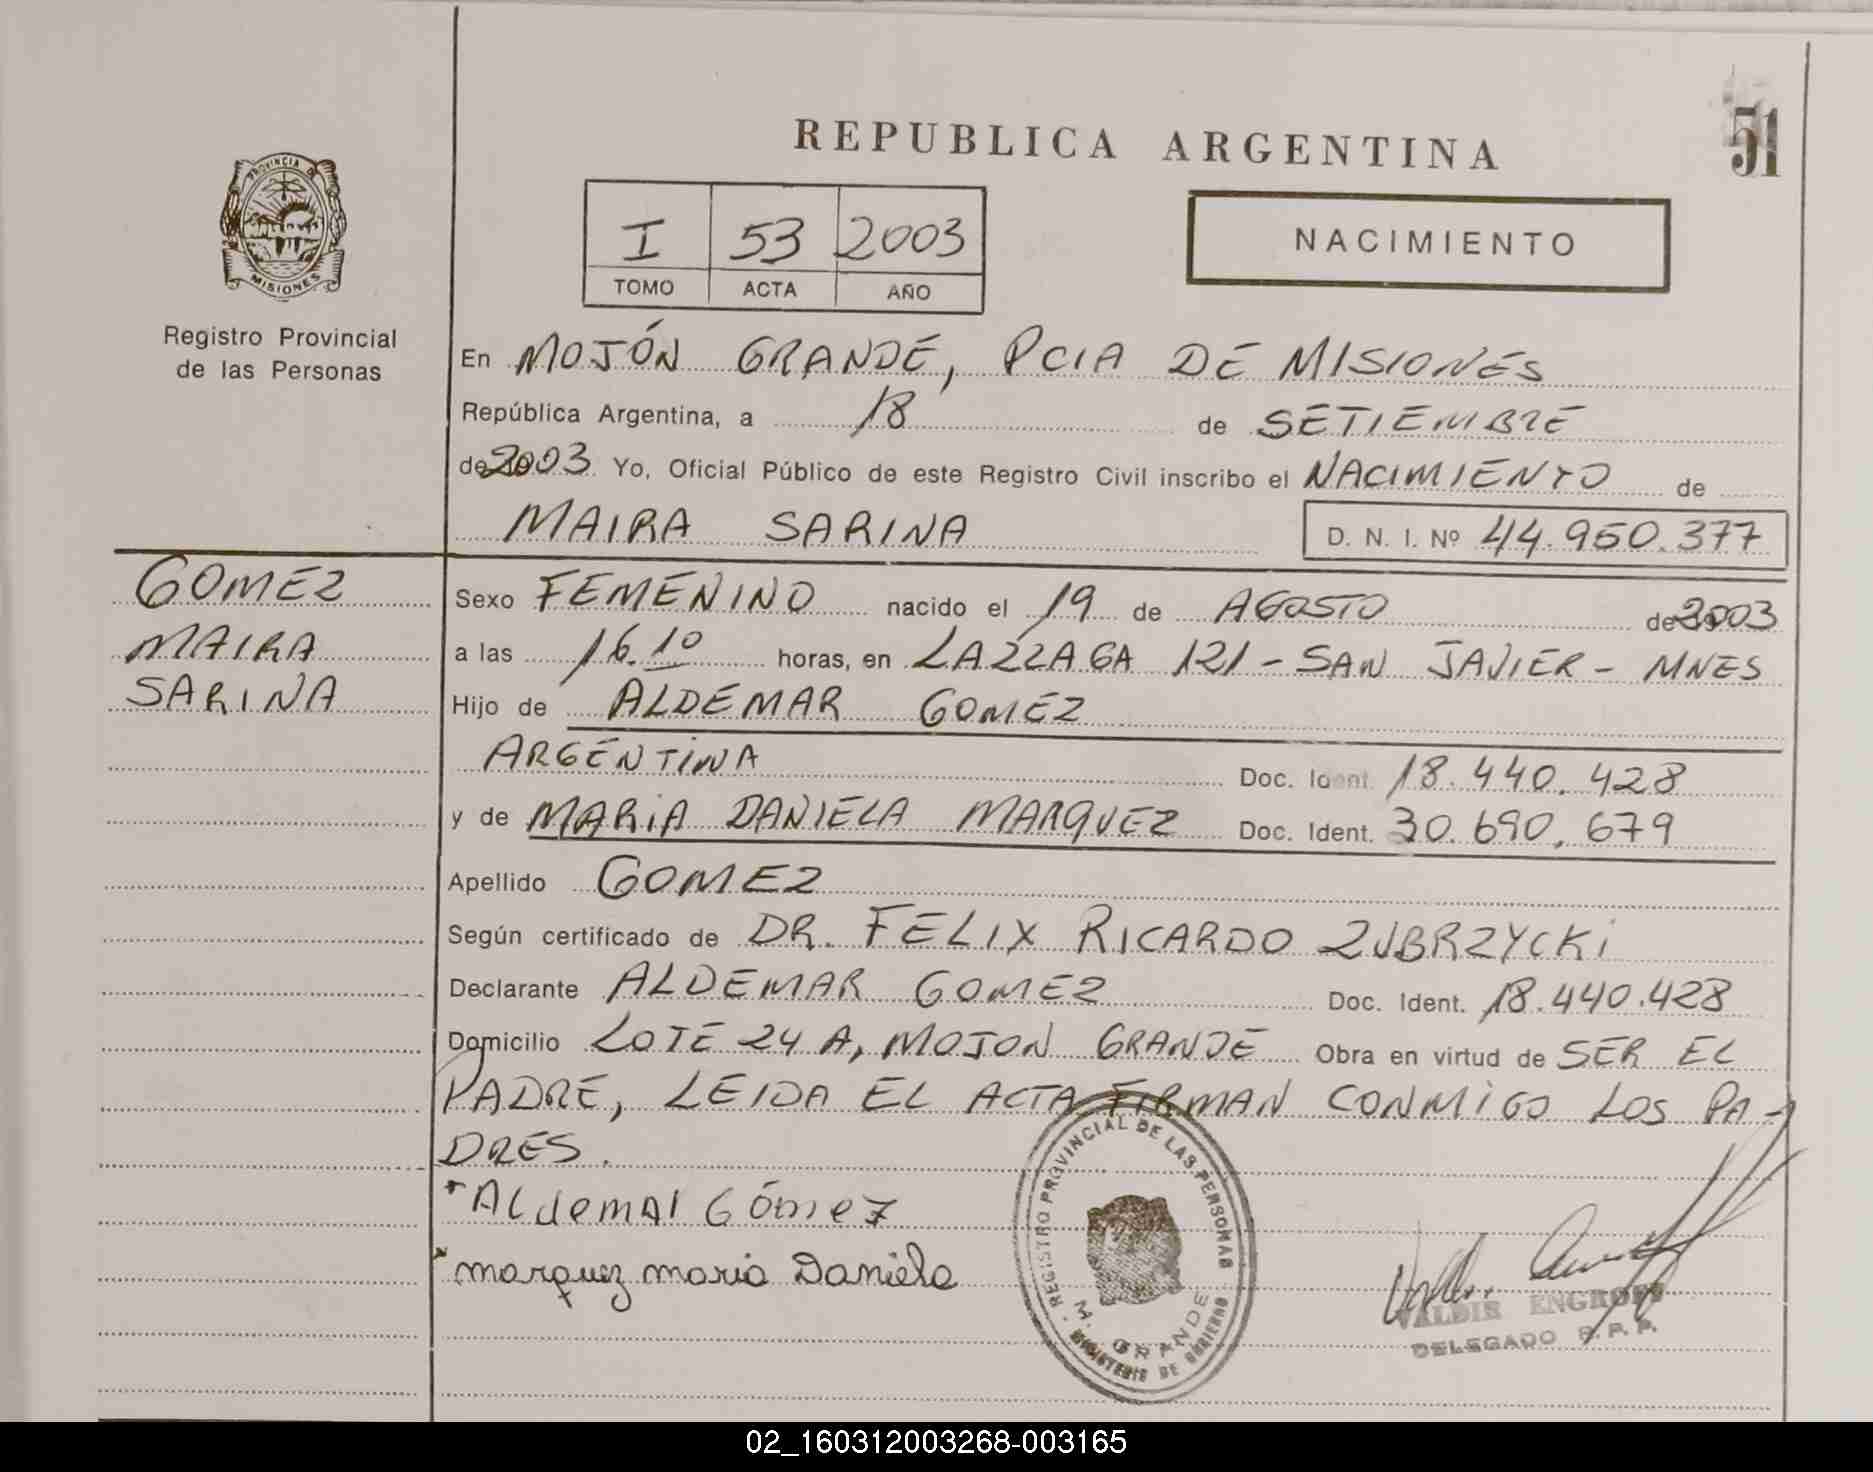 REPUBLICA ARGENTINA
51
PROVINCIA DE
MISIONES
Registro Provincial
de las Personas
I 53 2003
TOMO ACTA AÑO
NACIMIENTO
En MOJÓN GRANDE, PCIA DE MISIONES
República Argentina, a 18 de SETIEMBRE
de 2003 Yo, Oficial Público de este Registro Civil inscribo el NACIMIENTO de
MAIRA SARINA D. N. I. Nº 44.950.377
GOMEZ
MAIRA
SARINA
Sexo FEMENINO nacido el 19 de AGOSTO de 2003
a las 16.10 horas, en LAZZAGA 121 - SAN JAVIER - MNES
Hijo de ALDEMAR GOMEZ
ARGENTINA Doc. Ident. 18.440.428
y de MARIA DANIELA MARQUEZ Doc. Ident. 30.690.679
Apellido GOMEZ
Según certificado de DR. FELIX RICARDO ZUBRZYCKI
Declarante ALDEMAR GOMEZ Doc. Ident. 18.440.428
Domicilio LOTE 24 A, MOJON GRANDE Obra en virtud de SER EL
PADRE, LEIDA EL ACTA FIRMAN CONMIGO LOS PA-
DRES.
Aldemar Gómez
marquez maria Daniela
REGISTRO PROVINCIAL DE LAS PERSONAS
M. GRANDE
MINISTERIO DE GOBIERNO
VALDIR ENGROFF
DELEGADO R.P.P.
02_160312003268-003165